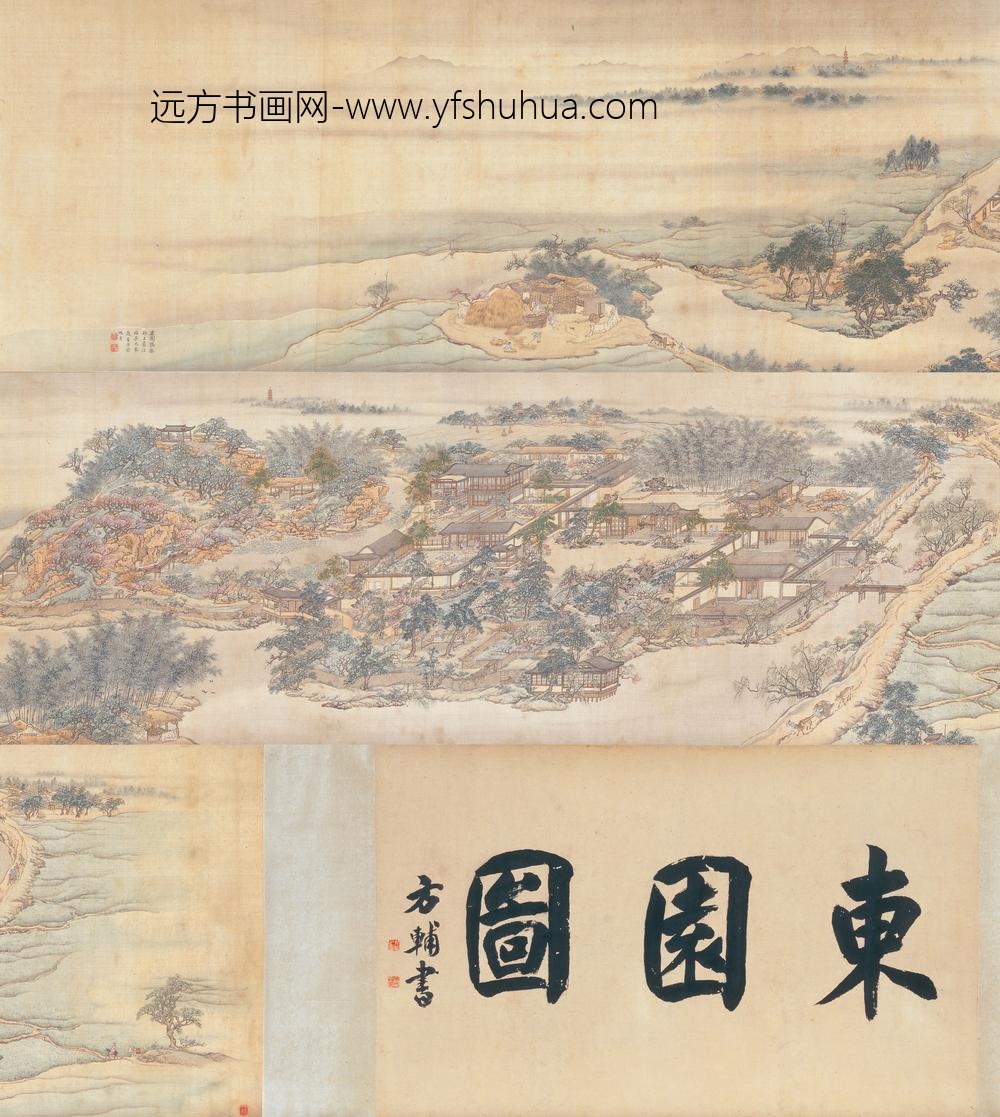 远方书画网-www.yfshuhua.com
東園圖
方輔書